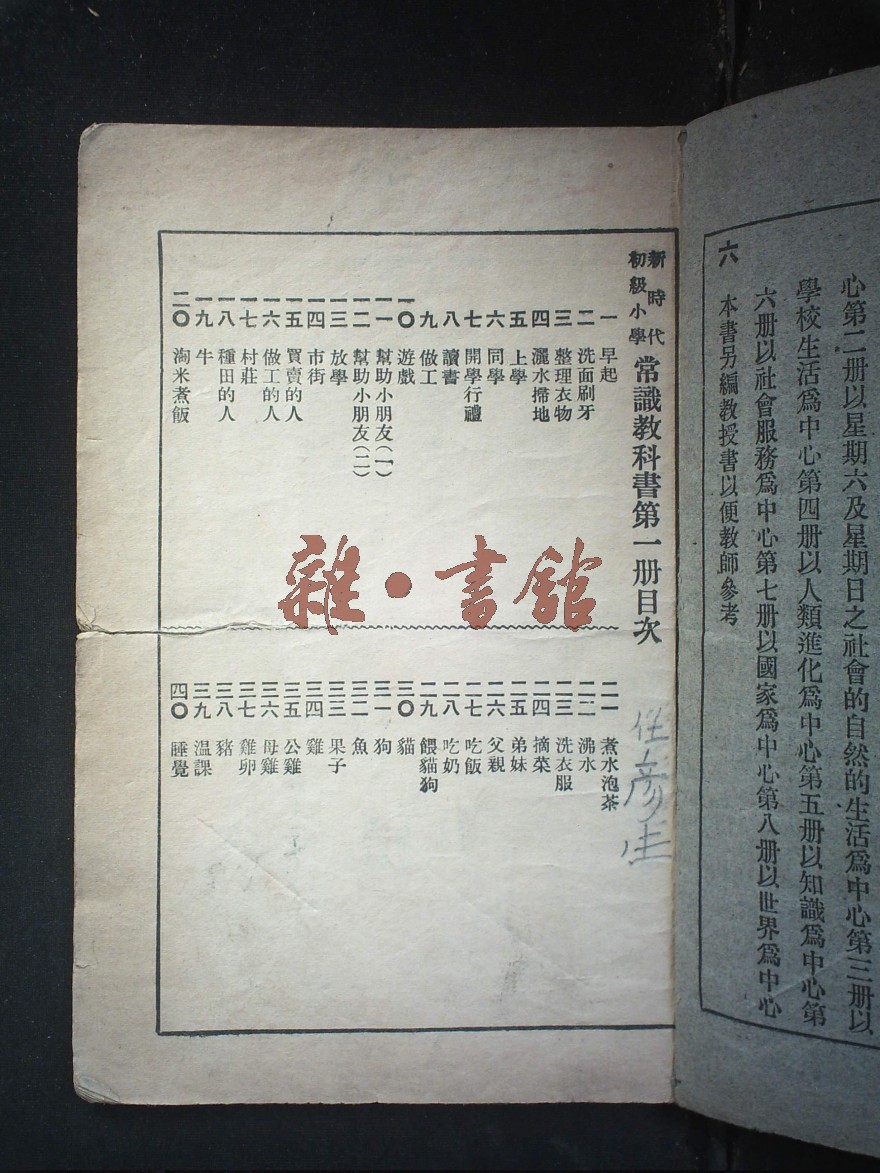 心第二册以星期六及星期日之社會的自然的生活爲中心第三册以
學校生活爲中心第四册以人類進化爲中心第五册以知識爲中心第
六册以社會服務爲中心第七册以國家爲中心第八册以世界爲中心
六 本書另編教授書以便教師參考
新時代
初級小學
常識教科書第一册目次
一 早起
二 洗面刷牙
三 整理衣物
四 灑水掃地
五 上學
六 同學
七 開學行禮
八 讀書
九 做工
一〇 遊戲
一一 幫助小朋友(一)
一二 幫助小朋友(二)
一三 放學
一四 市街
一五 買賣的人
一六 做工的人
一七 村莊
一八 種田的人
一九 牛
二〇 淘米煮飯
二一 煮水泡茶
二二 沸水
二三 洗衣服
二四 摘菜
二五 弟妹
二六 父親
二七 吃飯
二八 吃奶
二九 餵貓狗
三〇 貓
三一 狗
三二 魚
三三 果子
三四 雞
三五 公雞
三六 母雞
三七 雞卵
三八 豬
三九 温課
四〇 睡覺
任彥生
雜·書館